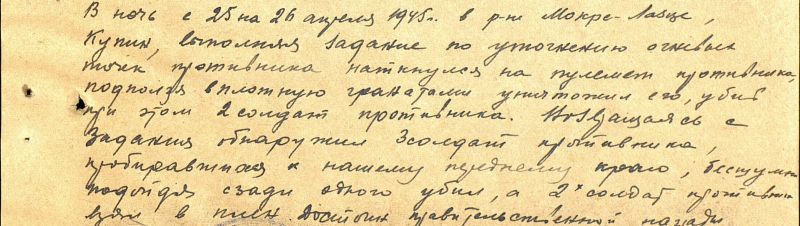 В ночь с 25 на 26 апреля 1945г. в р-не Мокре-Лазце,
Купин, выполняя задание по уточнению огневых
точек противника наткнулся на пулемет противника,
подползя вплотную гранатами уничтожил его, убив
при этом 2 солдат противника. Возвращаясь с
задания обнаружил 3 солдат противника,
пробиравшихся к нашему переднему краю, бесшумно
подойдя сзади одного убил, а 2х солдат противника
взял в плен. Достоин правительственной награды